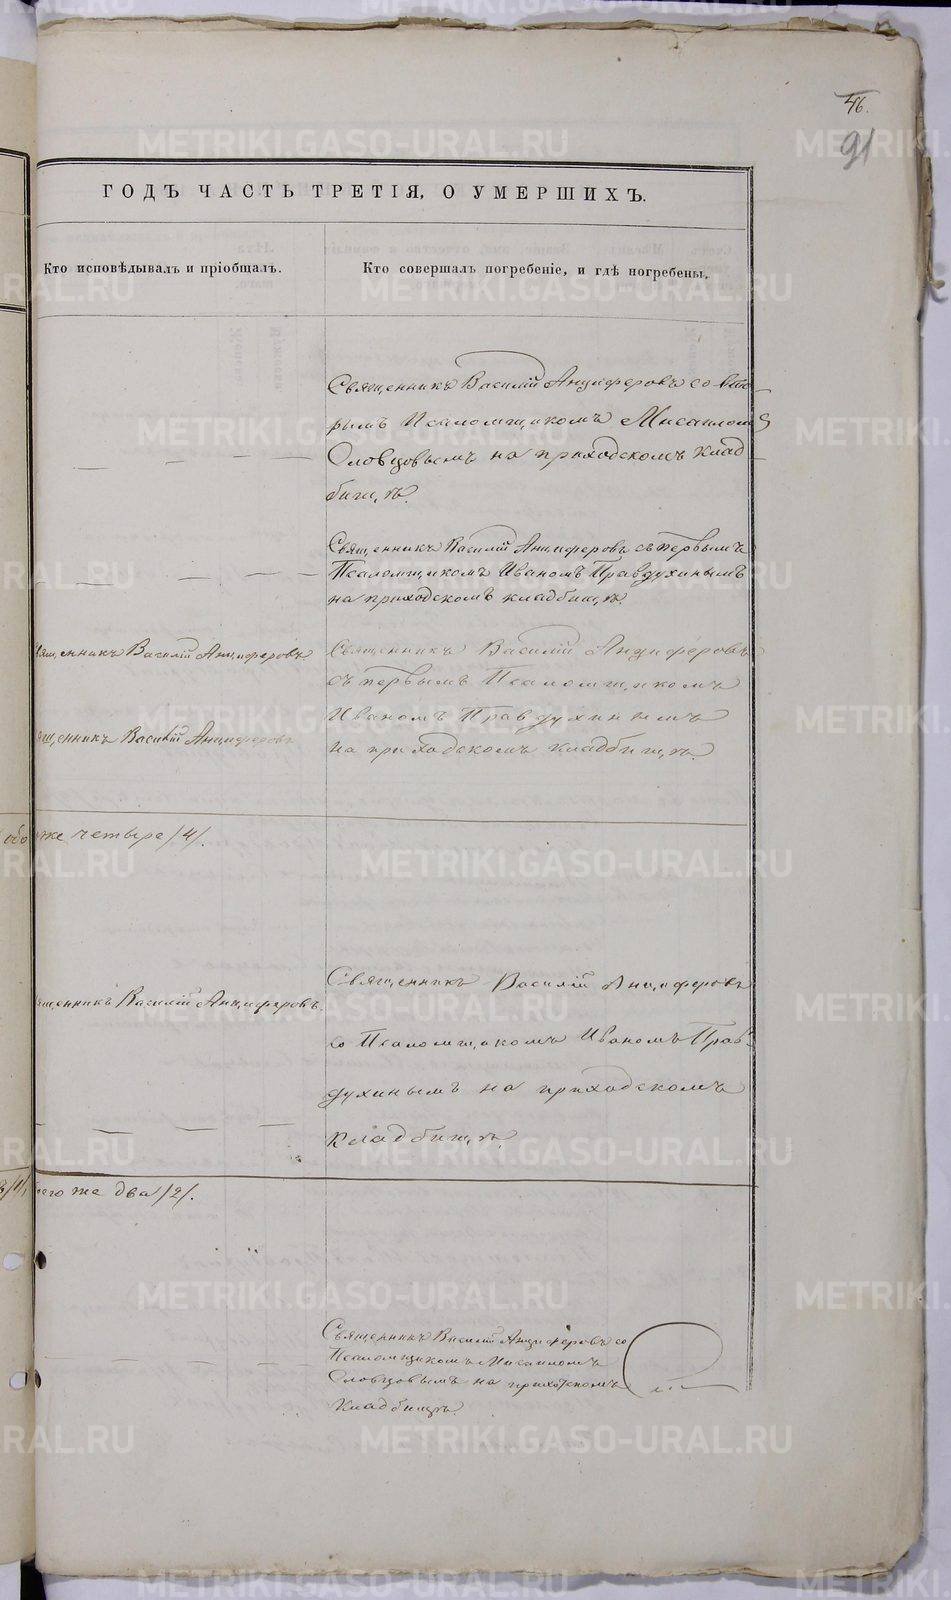 46.
91
ГОДЪ ЧАСТЬ ТРЕТІЯ, О УМЕРШИХЪ.
Кто исповѣдывалъ и пріобщалъ.
Кто совершалъ погребеніе, и гдѣ погребены.
Священникъ Василій Анциферовъ со вто-
рымъ Псаломщикомъ Мисаиломъ
Словцовымъ на приходскомъ клад-
бищѣ.
Священникъ Василій Анциферовъ съ первымъ
Псаломщикомъ Иваномъ Правдухинымъ
на приходскомъ кладбищѣ.
Священникъ Василій Анциферовъ
Священникъ Василій Анциферовъ
съ первымъ Псаломщикомъ
Иваномъ Правдухинымъ
на приходскомъ кладбищѣ.
Священникъ Василій Анциферовъ
же четыре /4/.
Священникъ Василій Анциферовъ
Священникъ Василій Анциферовъ
со Псаломщикомъ Иваномъ Прав-
духинымъ на приходскомъ
кладбищѣ.
его же два /2/.
Священникъ Василій Анциферовъ со
Псаломщикомъ Мисаиломъ
Словцовымъ на приходскомъ
кладбищѣ.
METRIKI.GASO-URAL.RU